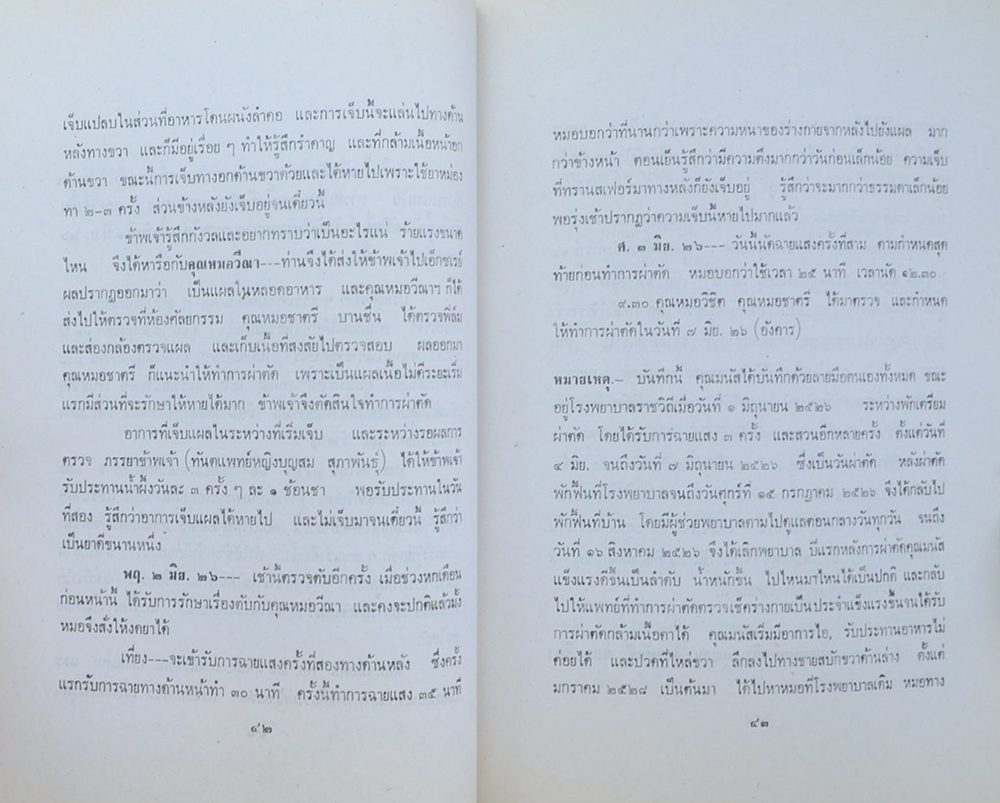 เจ็บแปลบในส่วนที่อาหารโดนผนังลำคอ และการเจ็บนี้จะแล่นไปทางด้าน
หลังทางขวา และก็มีอยู่เรื่อย ๆ ทำให้รู้สึกรำคาญ และที่กล้ามเนื้อหน้าอก
ด้านขวา ขณะนี้การเจ็บทางอกด้านขวาด้วยและได้หายไปเพราะใช้ยาหม่อง
ทา ๒-๓ ครั้ง ส่วนข้างหลังยังเจ็บอยู่จนเดี๋ยวนี้
ข้าพเจ้ารู้สึกกังวลและอยากทราบว่าเป็นอะไรแน่ ร้ายแรงขนาด
ไหน จึงได้หารือกับคุณหมอวีณา---ท่านจึงได้ส่งให้ข้าพเจ้าไปเอ็กซเรย์
ผลปรากฏออกมาว่า เป็นแผลในหลอดอาหาร และคุณหมอวีณาฯ ก็ได้
ส่งไปให้ตรวจที่ห้องศัลยกรรม คุณหมอชาตรี บานชื่น ได้ตรวจฟิล์ม
และส่องกล้องตรวจแผล และเก็บเนื้อที่สงสัยไปตรวจสอบ ผลออกมา
คุณหมอชาตรี ก็แนะนำให้ทำการผ่าตัด เพราะเป็นแผลเนื้อไม่ดีระยะเริ่ม
แรกมีส่วนที่จะรักษาให้หายได้มาก ข้าพเจ้าจึงตัดสินใจทำการผ่าตัด
อาการที่เจ็บแผลในระหว่างที่เริ่มเจ็บ และระหว่างรอผลการ
ตรวจ ภรรยาข้าพเจ้า (ทันตแพทย์หญิงบุญสม สุภาพันธุ์) ได้ให้ข้าพเจ้า
รับประทานน้ำผึ้งวันละ ๓ ครั้ง ๆ ละ ๑ ช้อนชา พอรับประทานในวัน
ที่สอง รู้สึกว่าอาการเจ็บแผลได้หายไป และไม่เจ็บมาจนเดี๋ยวนี้ รู้สึกว่า
เป็นยาดีขนานหนึ่ง
พฤ. ๒ มิย. ๒๖--- เช้านี้ตรวจตับอีกครั้ง เมื่อช่วงหกเดือน
ก่อนหน้านี้ ได้รับการรักษาเรื่องตับกับคุณหมอวีณา และคงจะปกติแล้วมั้ง
หมอจึงสั่งให้งดยาได้
เที่ยง---จะเข้ารับการฉายแสงครั้งที่สองทางด้านหลัง ซึ่งครั้ง
แรกรับการฉายทางด้านหน้าทำ ๓๐ นาที ครั้งนี้ทำการฉายแสง ๓๕ นาที
๔๒
หมอบอกว่าที่นานกว่าเพราะความหนาของร่างกายจากหลังไปยังแผล มาก
กว่าข้างหน้า ตอนเย็นรู้สึกว่ามีความตึงมากกว่าวันก่อนเล็กน้อย ความเจ็บ
ที่ทรานสเฟอร์มาทางหลังก็ยังเจ็บอยู่ รู้สึกว่าจะมากกว่าธรรมดาเล็กน้อย
พอรุ่งเช้าปรากฏว่าความเจ็บนี้หายไปมากแล้ว
ศ. ๓ มิย. ๒๖--- วันนี้นัดฉายแสงครั้งที่สาม ตามกำหนดสุด
ท้ายก่อนทำการผ่าตัด หมอบอกว่าใช้เวลา ๒๕ นาที เวลานัด ๑๒.๓๐
๙.๓๐ คุณหมอวิชิต คุณหมอชาตรี ได้มาตรวจ และกำหนด
ให้ทำการผ่าตัดในวันที่ ๗ มิย. ๒๖ (อังคาร)
หมายเหตุ.- บันทึกนี้ คุณมนัสได้บันทึกด้วยลายมือตนเองทั้งหมด ขณะ
อยู่โรงพยาบาลราชวิถีเมื่อวันที่ ๑ มิถุนายน ๒๕๒๖ ระหว่างพักเตรียม
ผ่าตัด โดยได้รับการฉายแสง ๓ ครั้ง และสวนอีกหลายครั้ง ตั้งแต่วันที่
๔ มิย. จนถึงวันที่ ๗ มิถุนายน ๒๕๒๖ ซึ่งเป็นวันผ่าตัด หลังผ่าตัด
พักฟื้นที่โรงพยาบาลจนถึงวันศุกร์ที่ ๑๕ กรกฎาคม ๒๕๒๖ จึงได้กลับไป
พักฟื้นที่บ้าน โดยมีผู้ช่วยพยาบาลตามไปดูแลตอนกลางวันทุกวัน จนถึง
วันที่ ๑๖ สิงหาคม ๒๕๒๖ จึงได้เลิกพยาบาล ปีแรกหลังการผ่าตัดคุณมนัส
แข็งแรงดีขึ้นเป็นลำดับ น้ำหนักขึ้น ไปไหนมาไหนได้เป็นปกติ และกลับ
ไปให้แพทย์ที่ทำการผ่าตัดตรวจเช็คร่างกายเป็นประจำแข็งแรงขึ้นจนได้รับ
การผ่าตัดกล้ามเนื้อตาได้ คุณมนัสเริ่มมีอาการไอ, รับประทานอาหารไม่
ค่อยได้ และปวดที่ไหล่ขวา ลึกลงไปทางชายสบักขวาด้านล่าง ตั้งแต่
มกราคม ๒๕๒๘ เป็นต้นมา ได้ไปหาหมอที่โรงพยาบาลเดิม หมอทาง
๔๓